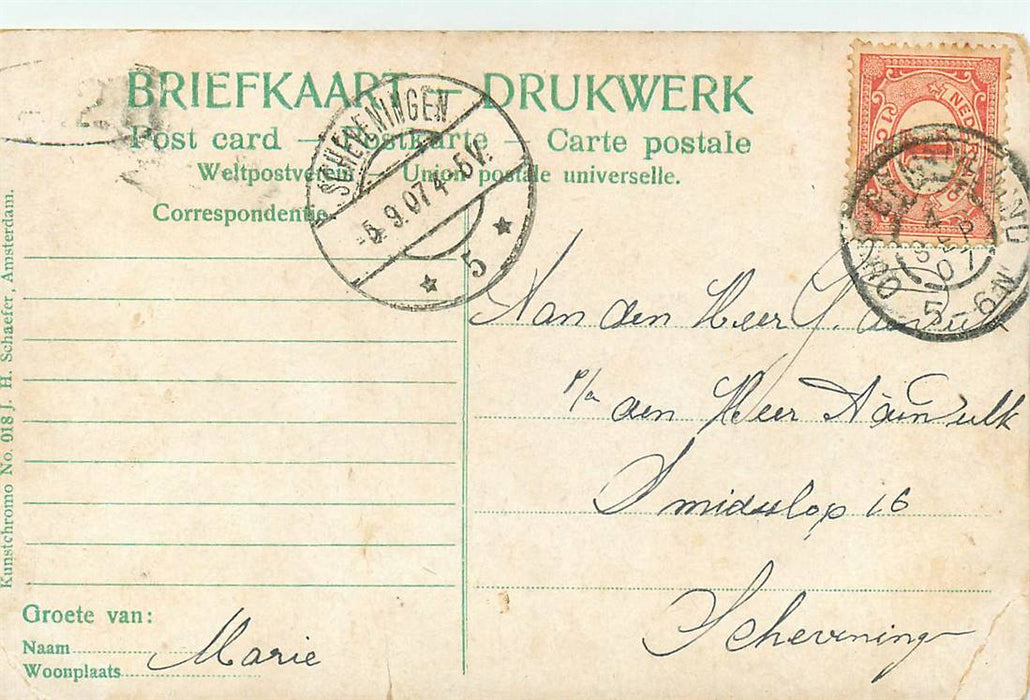 BRIEFKAART — DRUKWERK
Post card — Postkarte — Carte postale
Weltpostverein — Union postale universelle.
Correspondentie
SCHEVENINGEN
-5.9.07 4-5V.
5
4
SEP
07
5-6N
NEDERLAND
1
Aan den Heer J.
p/a den Heer
Smidslop 16
Schevening
Groete van:
Naam Marie
Woonplaats
Kunstchromo No. 018 J. H. Schaefer, Amsterdam.